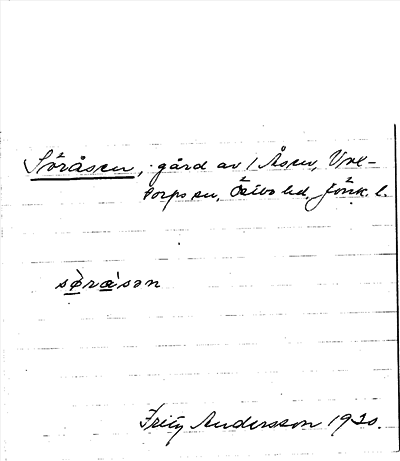 Söråsen, gård av 1 Åsen, Vre-
torps sn, Östbo hd, Jönk. l.
sø̀ra̾sən
Fritz Andersson 1930.